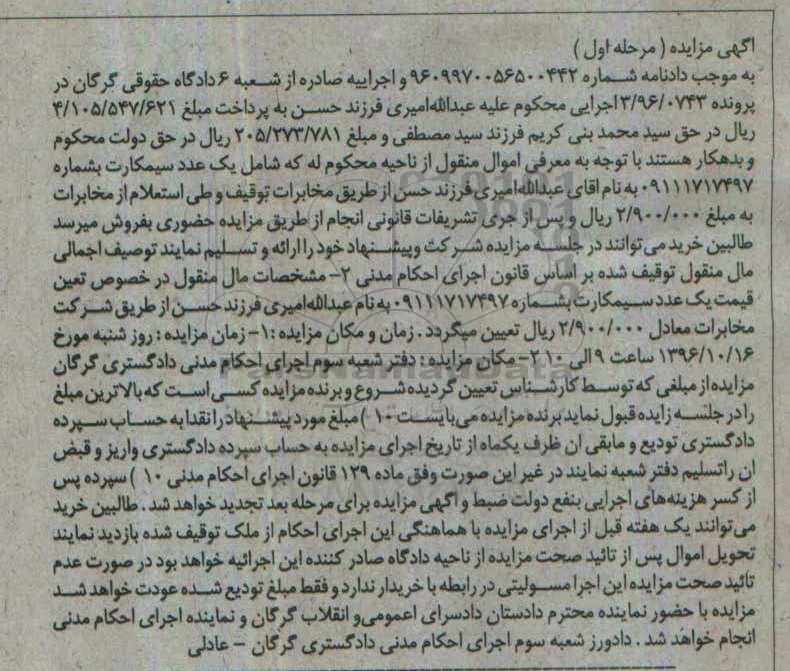 اگهی مزایده ( مرحله اول )
به موجب دادنامه شماره ۹۶۰۹۹۷۰۰۵۶۵۰۰۴۴۲ و اجراییه صادره از شعبه ۶ دادگاه حقوقی گرگان در
پرونده ۳/۹۶/۰۷۴۳ اجرایی محکوم علیه عبدالله‌امیری فرزند حسن به پرداخت مبلغ ۴/۱۰۵/۵۴۷/۶۲۱
ریال در حق سید محمد بنی کریم فرزند سید مصطفی و مبلغ ۲۰۵/۲۷۳/۷۸۱ ریال در حق دولت محکوم
و بدهکار هستند با توجه به معرفی اموال منقول از ناحیه محکوم له که شامل یک عدد سیمکارت بشماره
۰۹۱۱۱۷۱۷۴۹۷ به نام اقای عبدالله‌امیری فرزند حسن از طریق مخابرات توقیف و طی استعلام از مخابرات
به مبلغ ۲/۹۰۰/۰۰۰ ریال و پس از جری تشریفات قانونی انجام از طریق مزایده حضوری بفروش میرسد
طالبین خرید می‌توانند در جلسه مزایده شرکت وپیشنهاد خود را ارائه و تسلیم نمایند توصیف اجمالی
مال منقول توقیف شده بر اساس قانون اجرای احکام مدنی ۲- مشخصات مال منقول در خصوص تعین
قیمت یک عدد سیمکارت بشماره ۰۹۱۱۱۷۱۷۴۹۷ به نام عبدالله‌امیری فرزند حسن از طریق شرکت
مخابرات معادل ۲/۹۰۰/۰۰۰ ریال تعیین میگردد . زمان و مکان مزایده :۱- زمان مزایده : روز شنبه مورخ
۱۳۹۶/۱۰/۱۶ ساعت ۹ الی ۱۰ ۲- مکان مزایده : دفتر شعبه سوم اجرای احکام مدنی دادگستری گرگان
مزایده از مبلغی که توسط کارشناس تعیین گردیده شروع و برنده مزایده کسی است که بالاترین مبلغ
را در جلسه زایده قبول نماید برنده مزایده می‌بایست ۱۰ ) مبلغ مورد پیشنهاد را نقدا به حساب سپرده
دادگستری تودیع و مابقی ان ظرف یکماه از تاریخ اجرای مزایده به حساب سپرده دادگستری واریز و قبض
ان راتسلیم دفتر شعبه نمایند در غیر این صورت وفق ماده ۱۲۹ قانون اجرای احکام مدنی ۱۰ ) سپرده پس
از کسر هزینه‌های اجرایی بنفع دولت ضبط و اگهی مزایده برای مرحله بعد تجدید خواهد شد . طالبین خرید
می‌توانند یک هفته قبل از اجرای مزایده با هماهنگی این اجرای احکام از ملک توقیف شده بازدید نمایند
تحویل اموال پس از تائید صحت مزایده از ناحیه دادگاه صادر کننده این اجرائیه خواهد بود در صورت عدم
تائید صحت مزایده این اجرا مسولیتی در رابطه با خریدار ندارد و فقط مبلغ تودیع شده عودت خواهد شد
مزایده با حضور نماینده محترم دادستان دادسرای اعمومی‌و انقلاب گرگان و نماینده اجرای احکام مدنی
انجام خواهد شد . دادورز شعبه سوم اجرای احکام مدنی دادگستری گرگان – عادلی